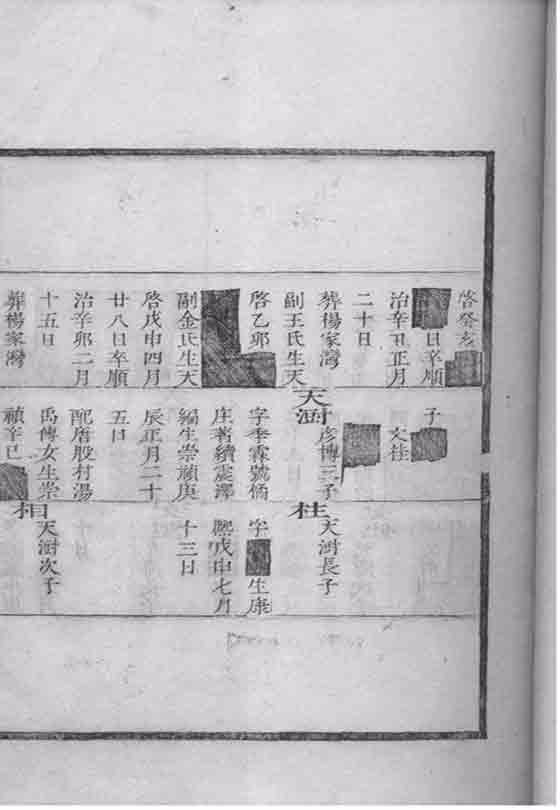 啓癸亥
日卒順
治辛丑正月
二十日
葬楊家灣
副王氏生天
啓乙卯
副金氏生天
啓戊申四月
廿八日卒順
治辛卯二月
十五日
葬楊家灣
子
文桂
天澍
彦博三子
字季霖號脩
庄著續震澤
編生崇禎庚
辰正月二十
五日
配唐股村湯
禹傳女生崇
禎辛巳
桂
天澍長子
字 生康
熙戊申七月
十三日
相
天澍次子